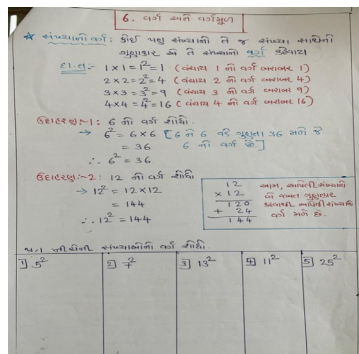 6. વર્ગ અને વર્ગમૂળ
* સંખ્યાનો વર્ગ: કોઈ પણ સંખ્યાનો તે જ સંખ્યા સાથેનો
ગુણાકાર એ તે સંખ્યાનો વર્ગ કહેવાય
દા.ત.: 1×1=1²=1 (વંચાય 1 નો વર્ગ બરાબર 1)
2×2=2²=4 (વંચાય 2 નો વર્ગ બરાબર 4)
3×3=3²=9 (વંચાય 3 નો વર્ગ બરાબર 9)
4×4=4²=16 (વંચાય 4 નો વર્ગ બરાબર 16)
ઉદાહરણ:-1: 6 નો વર્ગ શોધો.
→ 6² = 6×6 [6 ને 6 વડે ગુણતા 36 મળે જે
= 36 6 નો વર્ગ છે]
∴ 6² = 36
ઉદાહરણ:-2: 12 નો વર્ગ શોધો
→ 12² = 12×12
= 144
∴ 12² = 144
12
×12
120
+ 24
144
આમ, આપેલી સંખ્યાનો
બે વખત ગુણાકાર
કરવાથી આપેલી સંખ્યાનો
વર્ગ મળે છે.
નીચેની સંખ્યાઓનો વર્ગ શોધો.
1) 5² 2) 7² 3) 13² 4) 11² 5) 25²